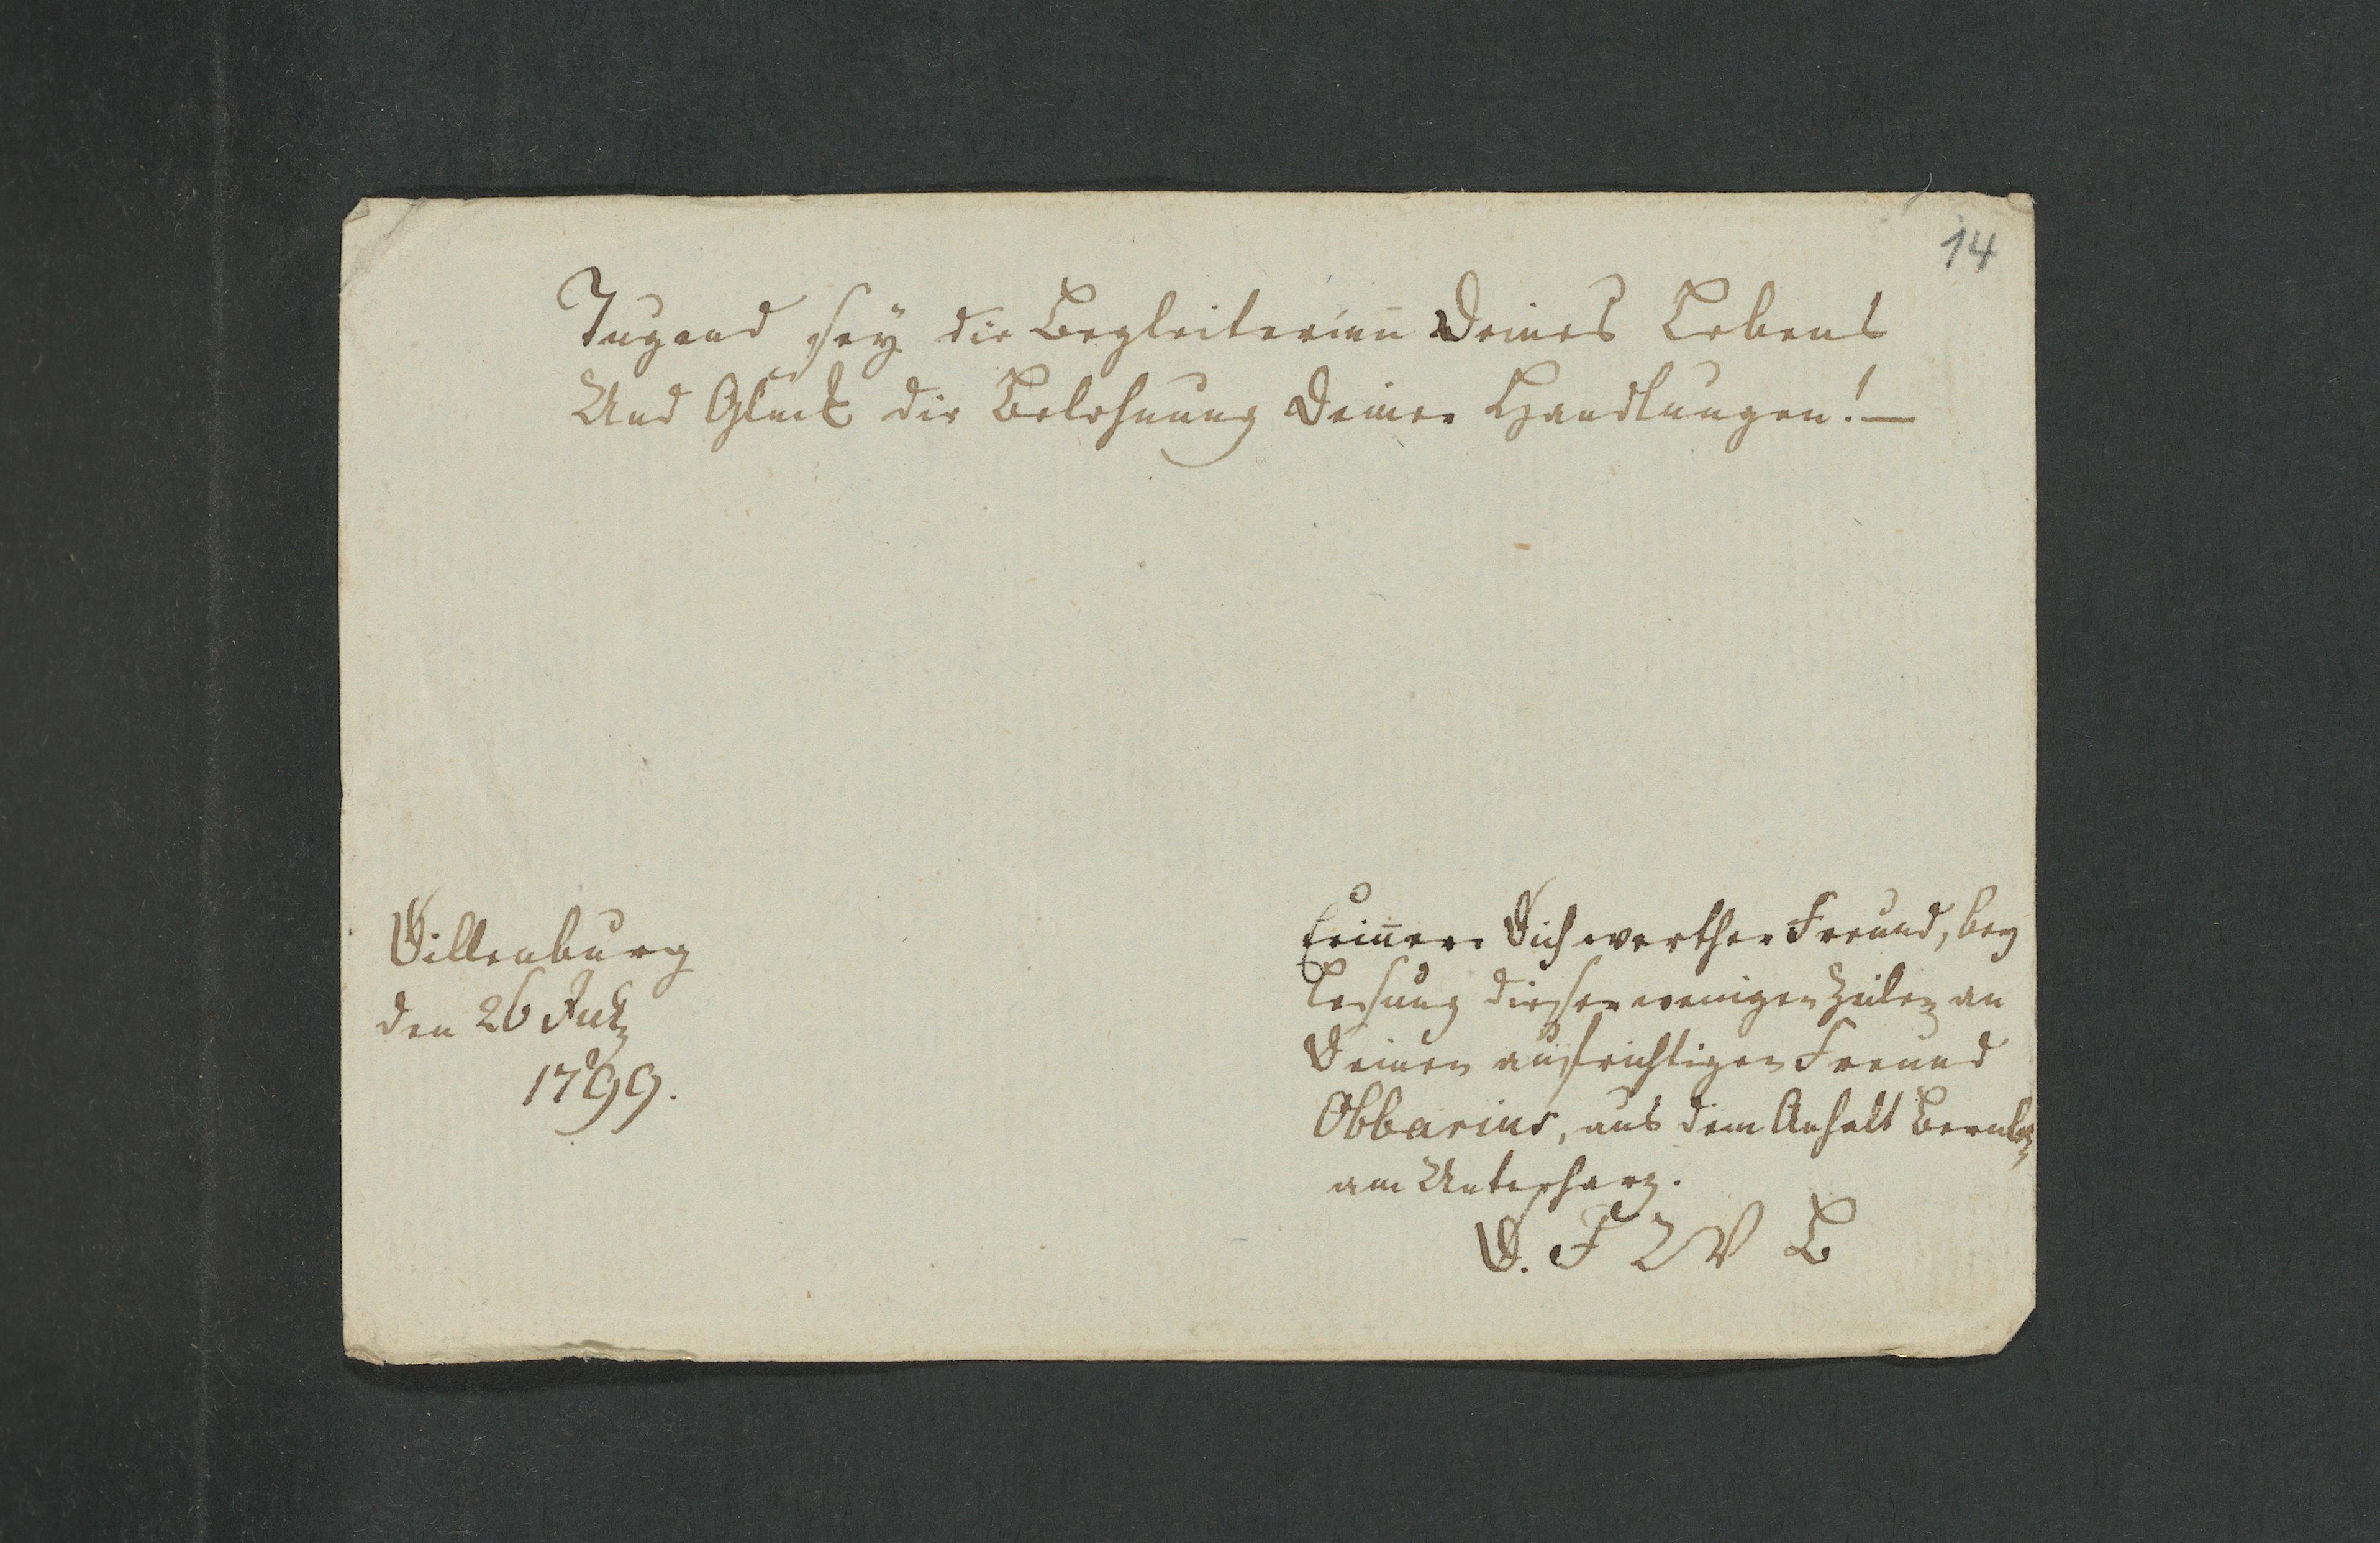 14
Tugend sey die Begleiterinn Deines Lebens
Und Glück die Belohnung Deiner Handlungen! —
Dillenburg
den 26 July
1799.
Erinnere Dich werther Freund, bey
Lesung dieser weniger Zeilen an
Deinen aufrichtigen Freund
Obbarius, aus dem Anhalt Bernb
am Unterharz.
D. F